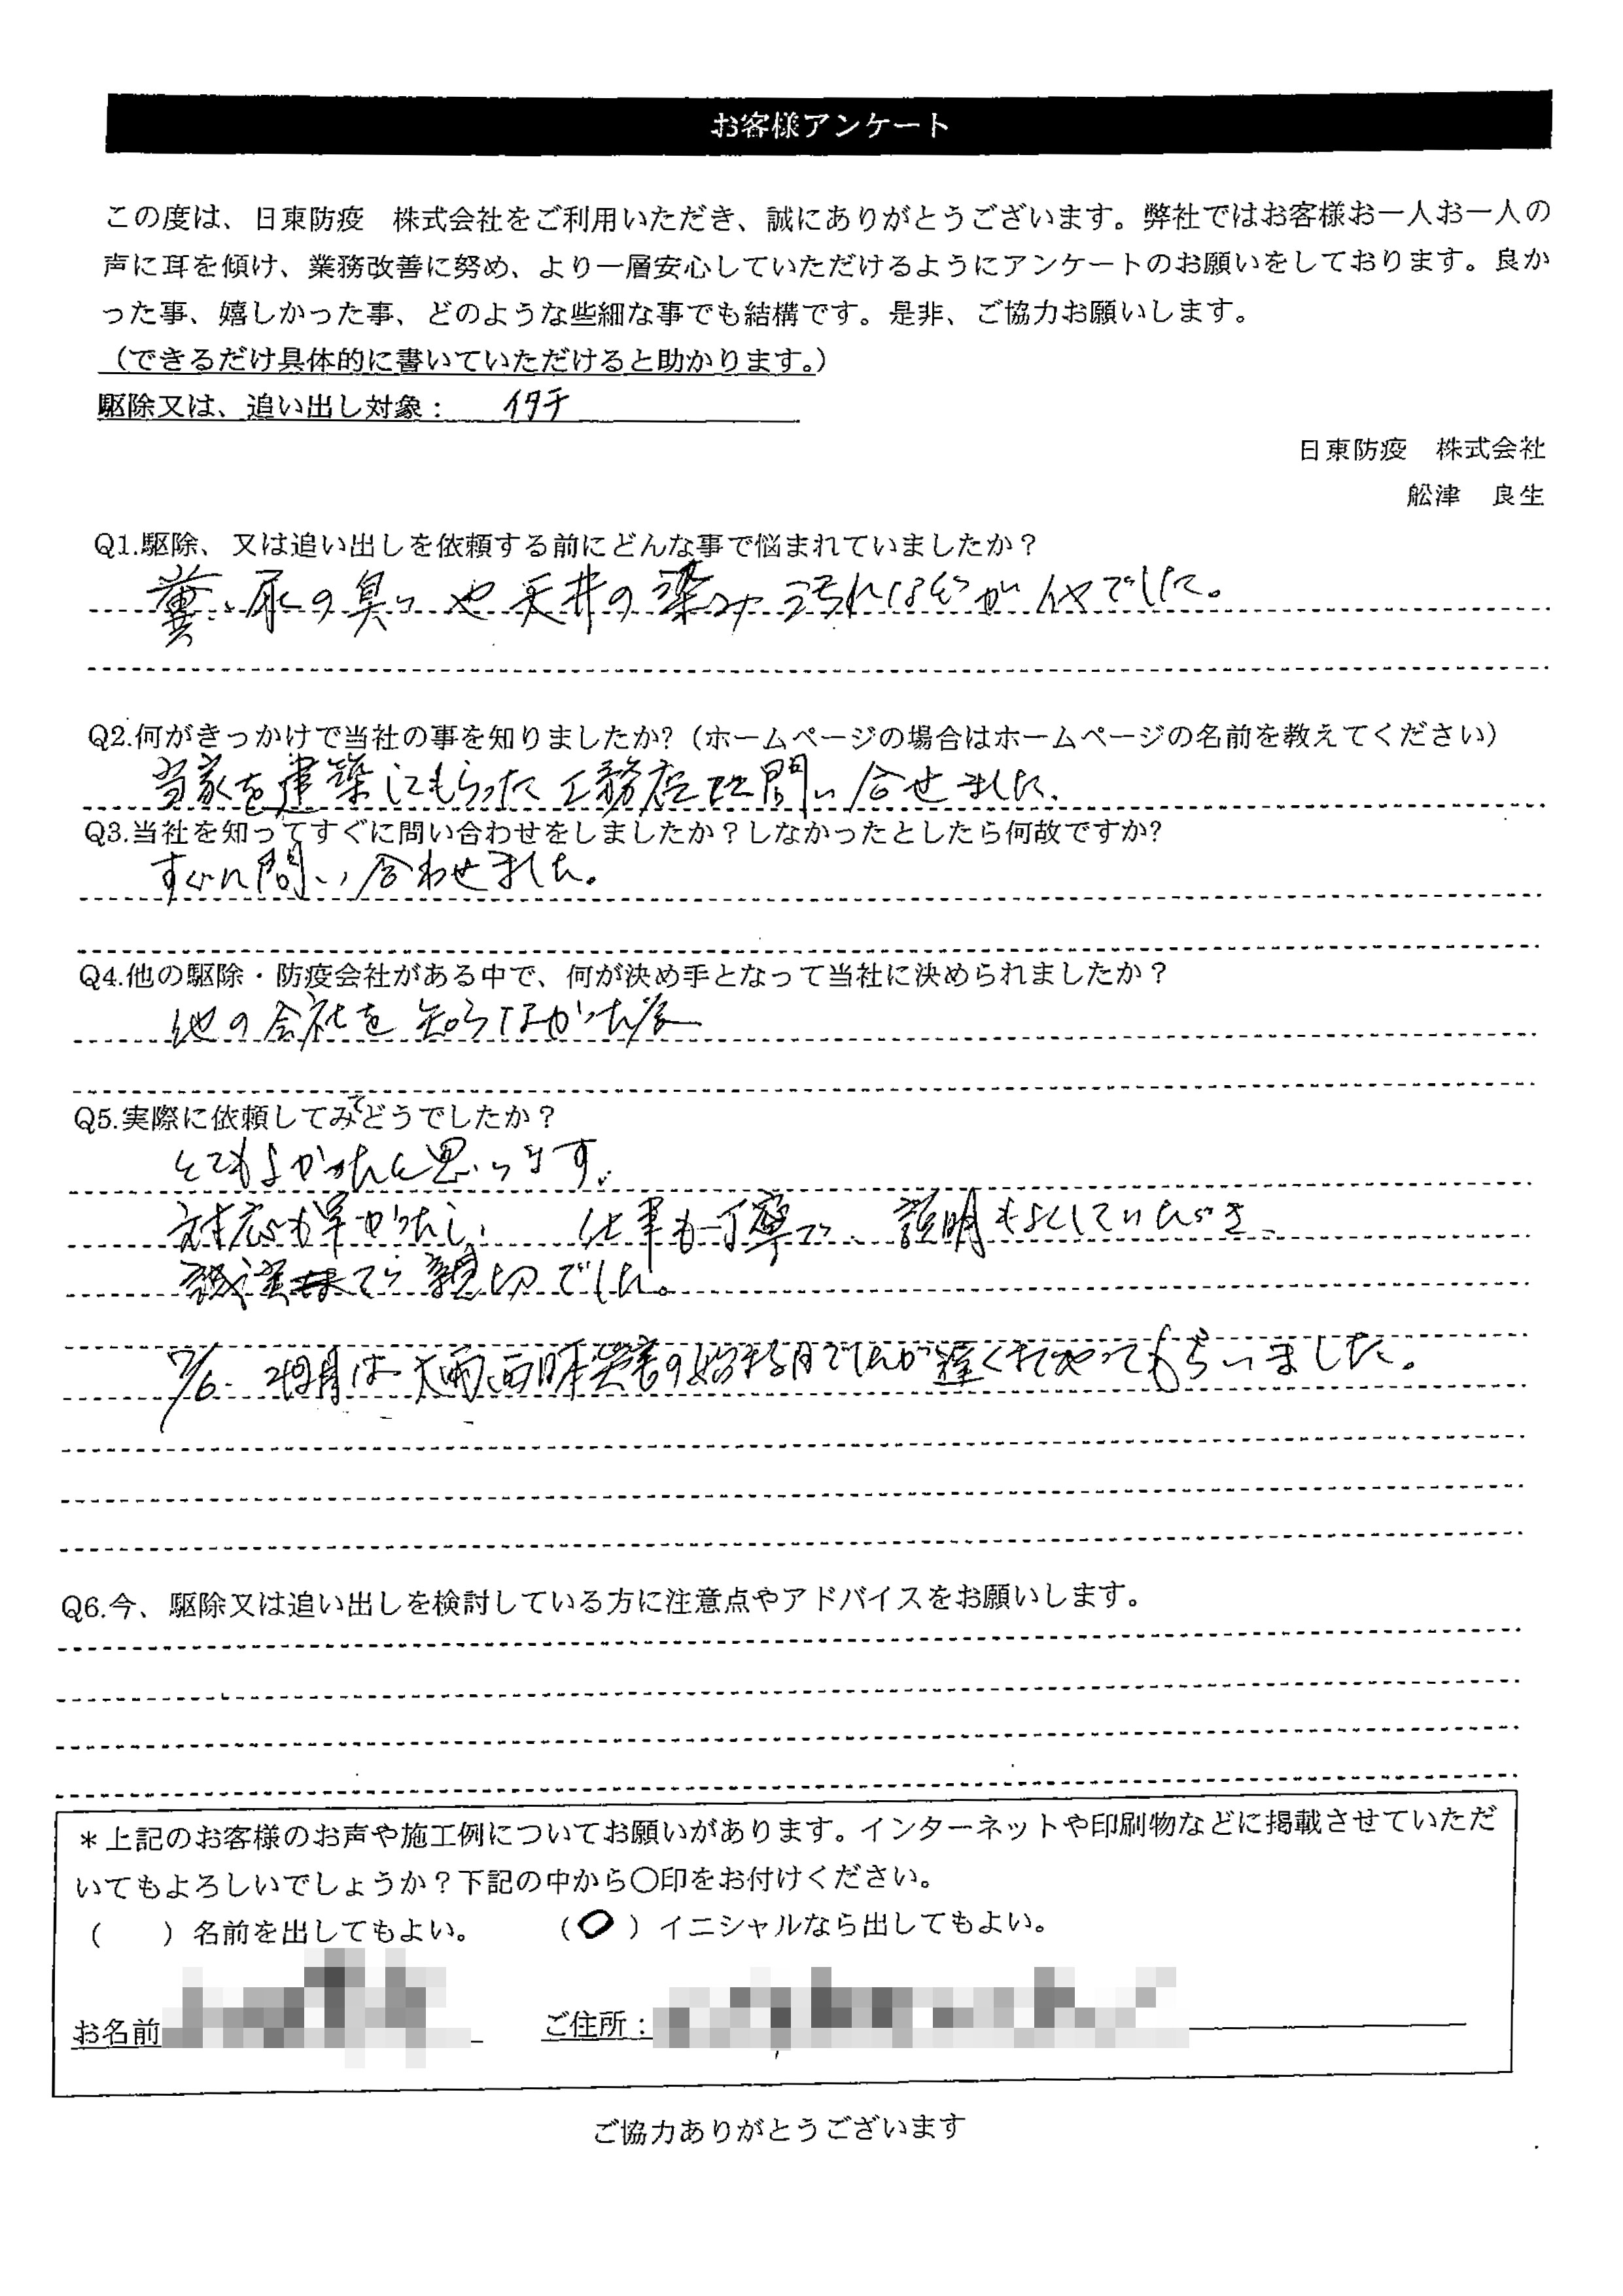 お客様アンケート
この度は、日東防疫　株式会社をご利用いただき、誠にありがとうございます。弊社ではお客様お一人お一人の
声に耳を傾け、業務改善に努め、より一層安心していただけるようにアンケートのお願いをしております。良か
った事、嬉しかった事、どのような些細な事でも結構です。是非、ご協力お願いします。
（できるだけ具体的に書いていただけると助かります。）
駆除又は、追い出し対象：　イタチ
日東防疫　株式会社
舩津　良生
Q1.駆除、又は追い出しを依頼する前にどんな事で悩まれていましたか？
糞、尿の臭いや天井の染み汚れなどがイヤでした。
Q2.何がきっかけで当社の事を知りましたか?（ホームページの場合はホームページの名前を教えてください）
当家を建築してもらった工務店に問い合せました。
Q3.当社を知ってすぐに問い合わせをしましたか？しなかったとしたら何故ですか?
すぐに問い合わせました。
Q4.他の駆除・防疫会社がある中で、何が決め手となって当社に決められましたか？
他の会社を知らなかった為
Q5.実際に依頼してみてどうでしたか？
とてもよかったと思います。
対応も早かったし、仕事も丁寧で、説明もよくしていただき、
親切でした。
7/6. は大雨、西日本災害の始まる日でしたが遅くまでやってもらいました。
Q6.今、駆除又は追い出しを検討している方に注意点やアドバイスをお願いします。
＊上記のお客様のお声や施工例についてお願いがあります。インターネットや印刷物などに掲載させていただ
いてもよろしいでしょうか？下記の中から〇印をお付けください。
（　　）名前を出してもよい。　　（〇）イニシャルなら出してもよい。
お名前　ご住所：
ご協力ありがとうございます